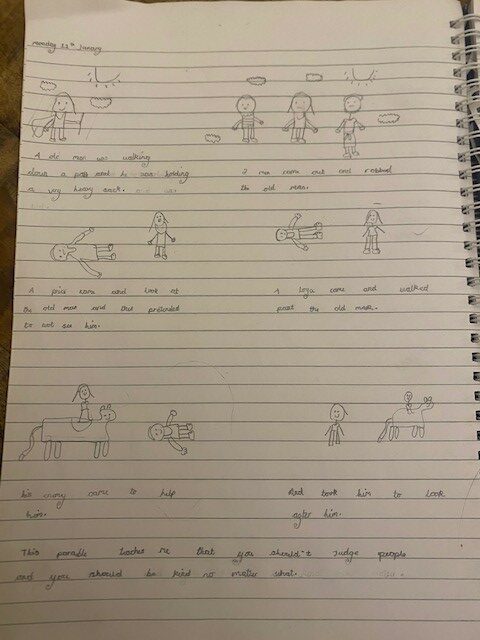 Monday 11th January
A old man was walking
down a path and he was holding
a very heavy sack.
2 men came out and robbed
the old man.
A pries came and look at
the old man and then pretended
to not see him.
A came and walked
past the old man.
his enemy came to help
him.
And took him to look
after him.
This parable teaches me that you should't judge people
and you should be kind no matter what.